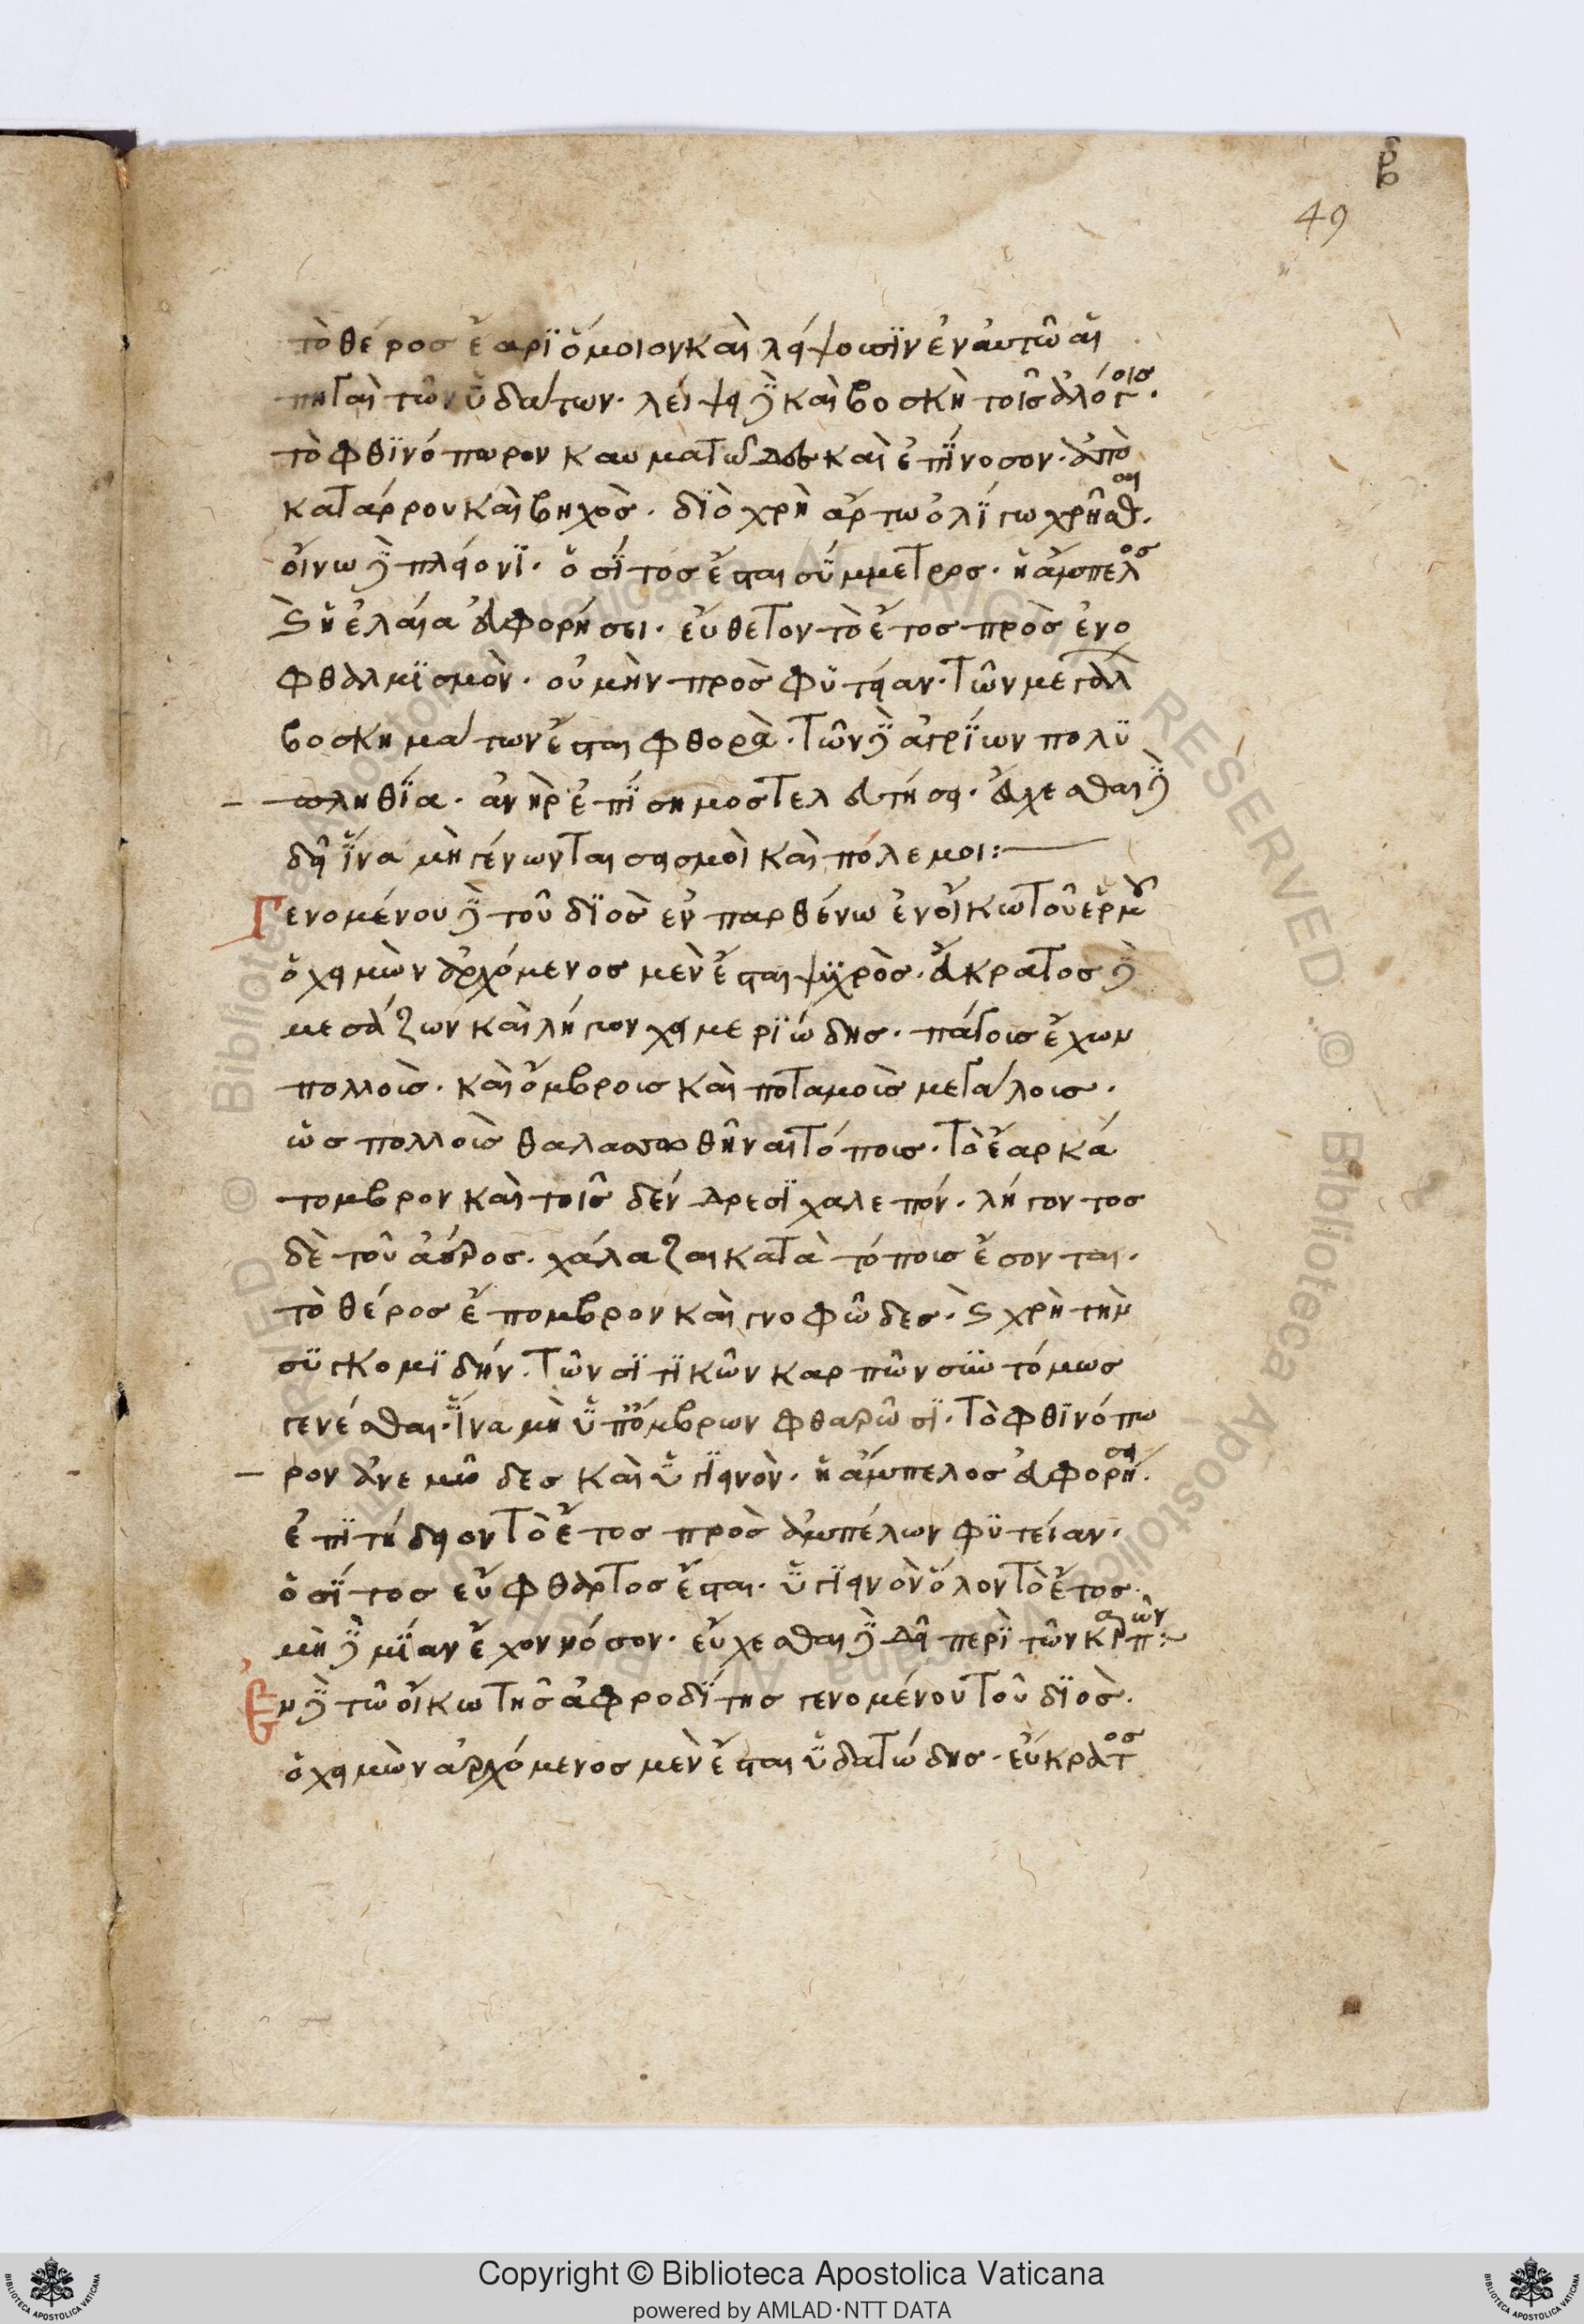 ρβ
49
τὸ θέρος ἔαρϊ ὅμοιον καὶ λείψουσϊν ἐν αὐτῶ αἱ
πηγαὶ τῶν ὑδάτων. λείψει δὲ καὶ βοσκὴ τοῖς ἀλόγοις.
τὸ φθϊνόπωρον καυματῶδες καὶ ἐπΐνοσον. ἀπὸ
κατάρρου καὶ βηχὸς. δϊὸ χρὴ ἄρτω ὀλΐγω χρῆσθαι.
οἴνω δὲ πλείονϊ. ὁ σῖτος ἔσται σύμμετρος. ἡ ἄμπελος
καὶ ἡ ἐλαία εὐφορήσει. εὔθετον τὸ ἔτος πρὸς ἐνο
φθαλμϊσμὸν. οὐ μὴν πρὸς φϋτείαν. τῶν μεγάλων
βοσκημάτων ἔσται φθορὰ. τῶν δὲ ἀγρΐων πολϋ
πληθΐα. ἀνὴρ ἐπΐσημος τελευτήσει. εὔχεσθαι δὲ
δεῖ ἵνα μὴ γένωνται σεισμοὶ καὶ πόλεμοι:
Γενομένου δὲ τοῦ δϊὸς ἐν παρθένω ἐν οἴκω τοῦ ἑρμοῦ
ὁ χειμὼν ἀρχόμενος μὲν ἔσται ψϋχρὸς. εὔκρατος δὲ
μεσάζων καὶ λήγων χειμερϊώδης. πάγους ἔχων
πολλοὺς. καὶ ὄμβρους καὶ ποταμοὺς μεγάλους.
ὡς πολλοὺς θαλασσωθῆναι τόπους. τὸ ἔαρ κά
τομβρον καὶ τοῖς δένδρεσϊ χαλεπόν. λήγοντος
δὲ τοῦ ἀέρος. χάλαζαι κατὰ τόπους ἔσονται.
τὸ θέρος ἔπομβρον καὶ γνοφῶδες. καὶ χρὴ τὴν
σϋγκομϊδήν. τῶν σϊτϊκῶν καρπῶν σϋντόμως
γενέσθαι. ἵνα μὴ ὑπ' ὄμβρων φθαρῶσϊ. τὸ φθϊνόπω
ρον ἀνεμῶδες καὶ ὑγϊεινὸν. ἡ ἄμπελος εὐφορήσει.
ἐπϊτήδειον τὸ ἔτος πρὸς ἀμπέλων φϋτείαν.
ὁ σῖτος εὔφθαρτος ἔσται. ὑγϊεινὸν ὅλον τὸ ἔτος.
μὴ δὲ μΐαν ἔχον νόσον. εὔχεσθαι δὲ δεῖ περὶ τῶν καρπῶν:
Ἐν δὲ τῶ οἴκω τῆς ἀφροδΐτης γενομένου τοῦ δϊὸς.
ὁ χειμὼν ἀρχόμενος μὲν ἔσται ὑδατώδης. εὔκρατος
Copyright © Biblioteca Apostolica Vaticana
powered by AMLAD·NTT DATA